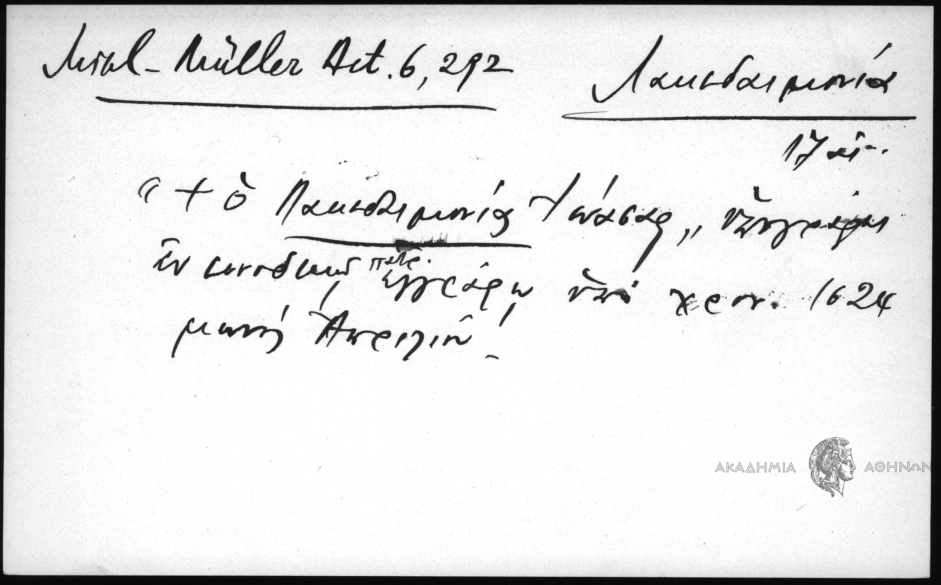 Mikl-Müller Act. 6, 292
Λακεδαιμονία
17 αι.
"+ ὁ Λακεδαιμονίας Ἰωάσαφ„ ὑπογράφει
ἐν συνοδικῷ πατρ. ἐγγράφῳ ὑπὸ χρον. 1624
μηνὸς Ἀπριλίου.
ΑΚΑΔΗΜΙΑ ΑΘΗΝΩΝ